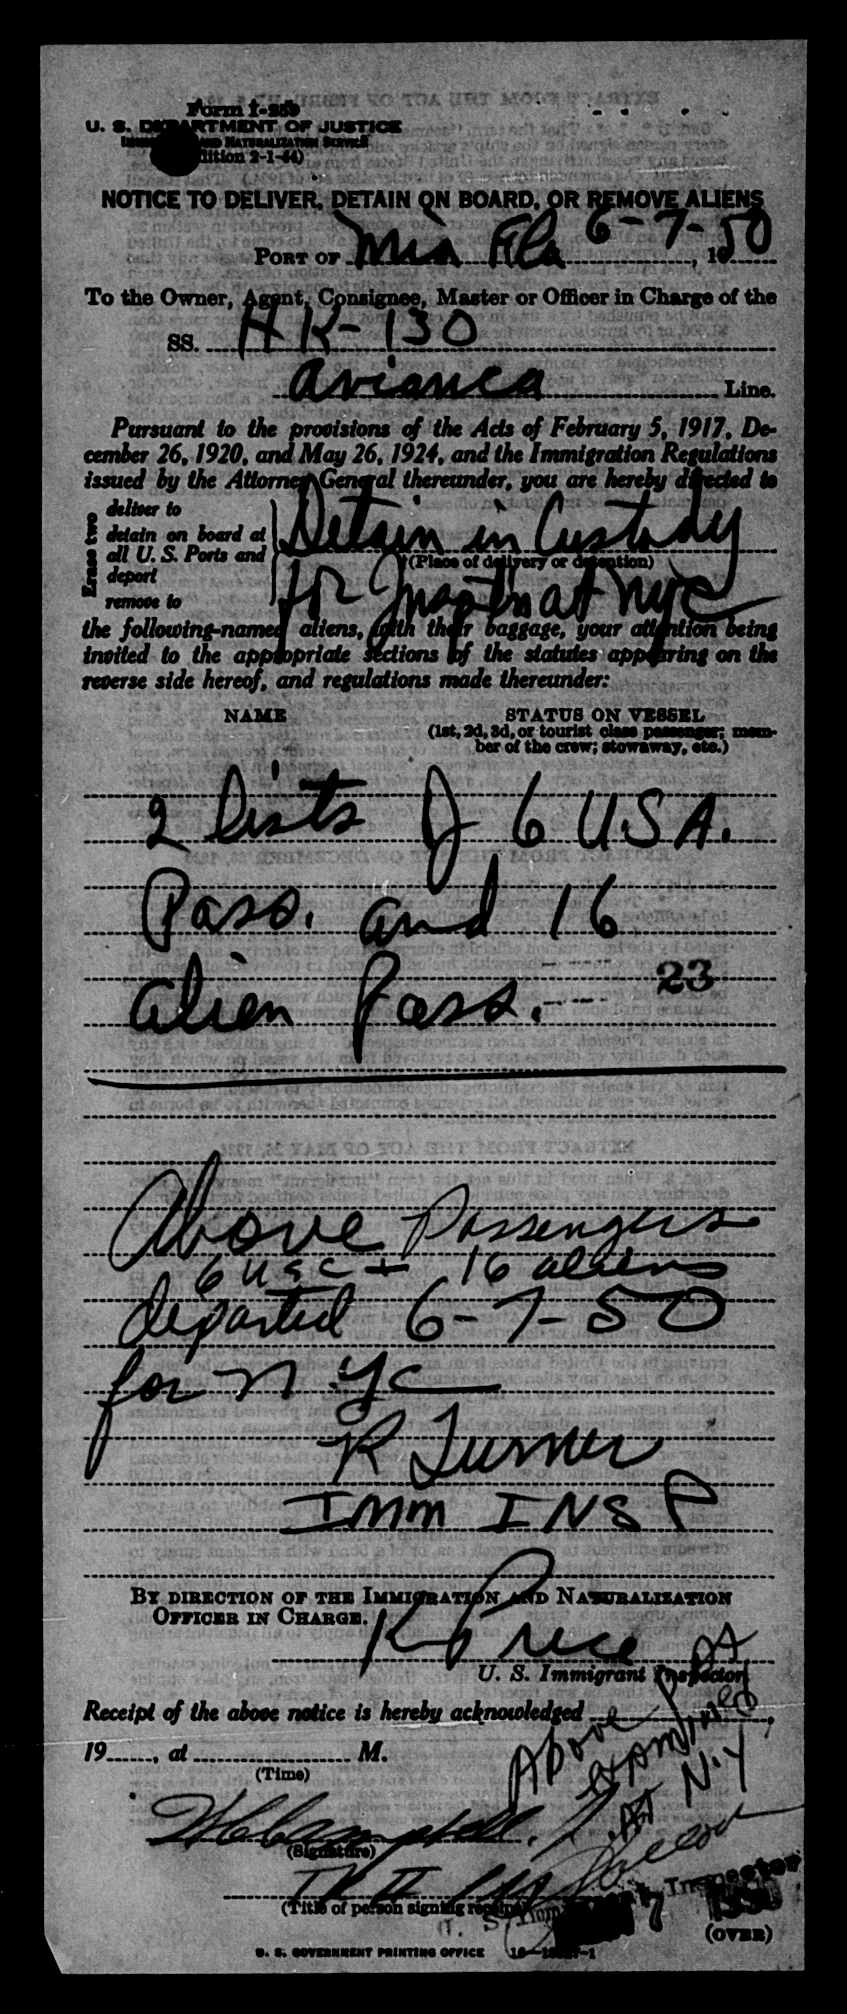 Form I-259
U. S. DEPARTMENT OF JUSTICE
IMMIGRATION AND NATURALIZATION SERVICE
(Edition 2-1-44)
NOTICE TO DELIVER, DETAIN ON BOARD, OR REMOVE ALIENS
PORT OF Mia Fla 6-7-, 1950
To the Owner, Agent, Consignee, Master or Officer in Charge of the
SS. HK-130
Avianca Line.
Pursuant to the provisions of the Acts of February 5, 1917, De-
cember 26, 1920, and May 26, 1924, and the Immigration Regulations
issued by the Attorney General thereunder, you are hereby directed to
Erase two
deliver to
detain on board at
all U. S. Ports and
deport
remove to
Detain in Custody
(Place of delivery or detention)
for Insptn at NYC
the following-named aliens, with their baggage, your attention being
invited to the appropriate sections of the statutes appearing on the
reverse side hereof, and regulations made thereunder:
NAME STATUS ON VESSEL
(1st, 2d, 3d, or tourist class passenger; mem-
ber of the crew; stowaway, etc.)
2 Lists of 6 USA.
Pass. and 16
alien Pass. --- 23
Above Passengers
6 USC + 16 aliens
departed 6-7-50
for N.YC
R Turner
IMM INSP
BY DIRECTION OF THE IMMIGRATION AND NATURALIZATION
OFFICER IN CHARGE.
K Price
U. S. Immigrant Inspector
Receipt of the above notice is hereby acknowledged ,
19 , at M.
(Time)
Above
Examined
At N.Y
(Signature)
(Title of person signing receipt)
U. S. Immigrant Inspector
7 1950
(OVER)
U. S. GOVERNMENT PRINTING OFFICE